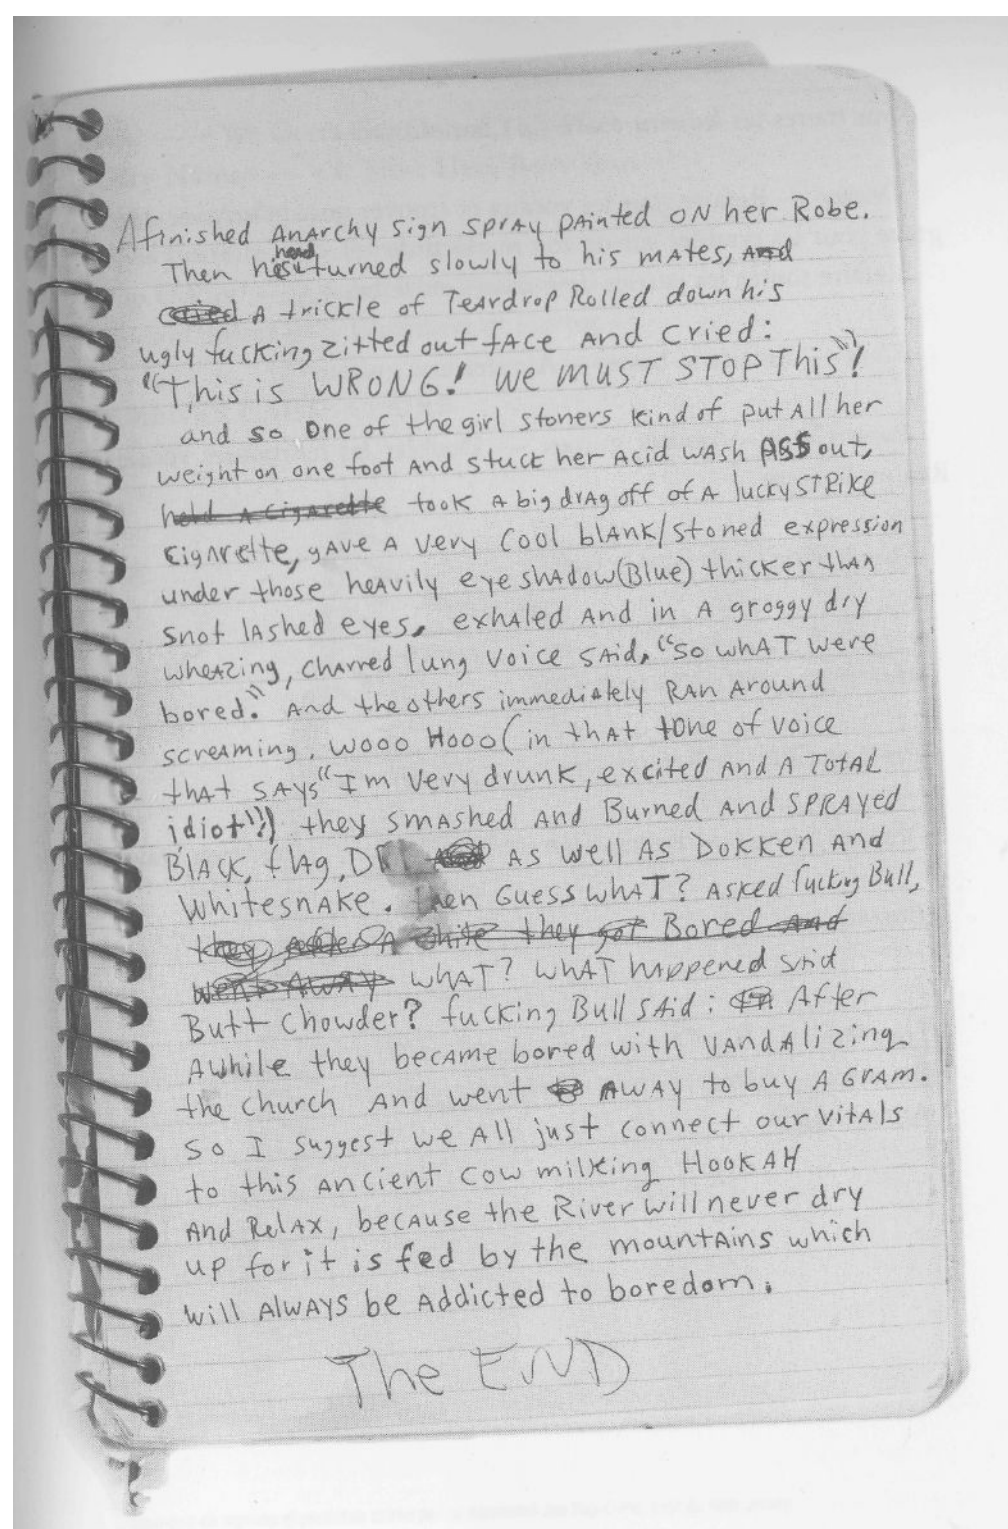 A finished Anarchy sign spray painted on her Robe.
Then his head turned slowly to his mates, And
cried A trickle of Teardrop Rolled down his
ugly fucking zitted out face and cried:
"This is WRONG! we MUST STOP This"!
and so one of the girl stoners kind of put all her
weight on one foot and stuck her acid wash ASS out,
held a cigarette took a big drag off of a lucky STRIKE
cigarette, gave a very cool blank/stoned expression
under those heavily eyeshadow(Blue) thicker than
snot lashed eyes, exhaled and in a groggy dry
wheazing, charred lung voice said, "So whAT were
bored." And the others immediately Ran around
screaming. wooo Hooo (in that tone of voice
that says "Im very drunk, excited and a TOTAL
idiot"!) they smashed and Burned and SPRAYed
BlACK, flag, D As well As Dokken and
Whitesnake. then Guess whAT? asked fucking Bull,
they after A while they got Bored And
went AWAY whAT? whAT happened said
Butt chowder? fucking Bull said: After
Awhile they became bored with vandalizing
the church and went AWAY to buy a GRAM.
so I suggest we all just connect our vitals
to this ancient cow milking HOOKAH
and Relax, because the River will never dry
up for it is fed by the mountains which
will always be addicted to boredom.
The END